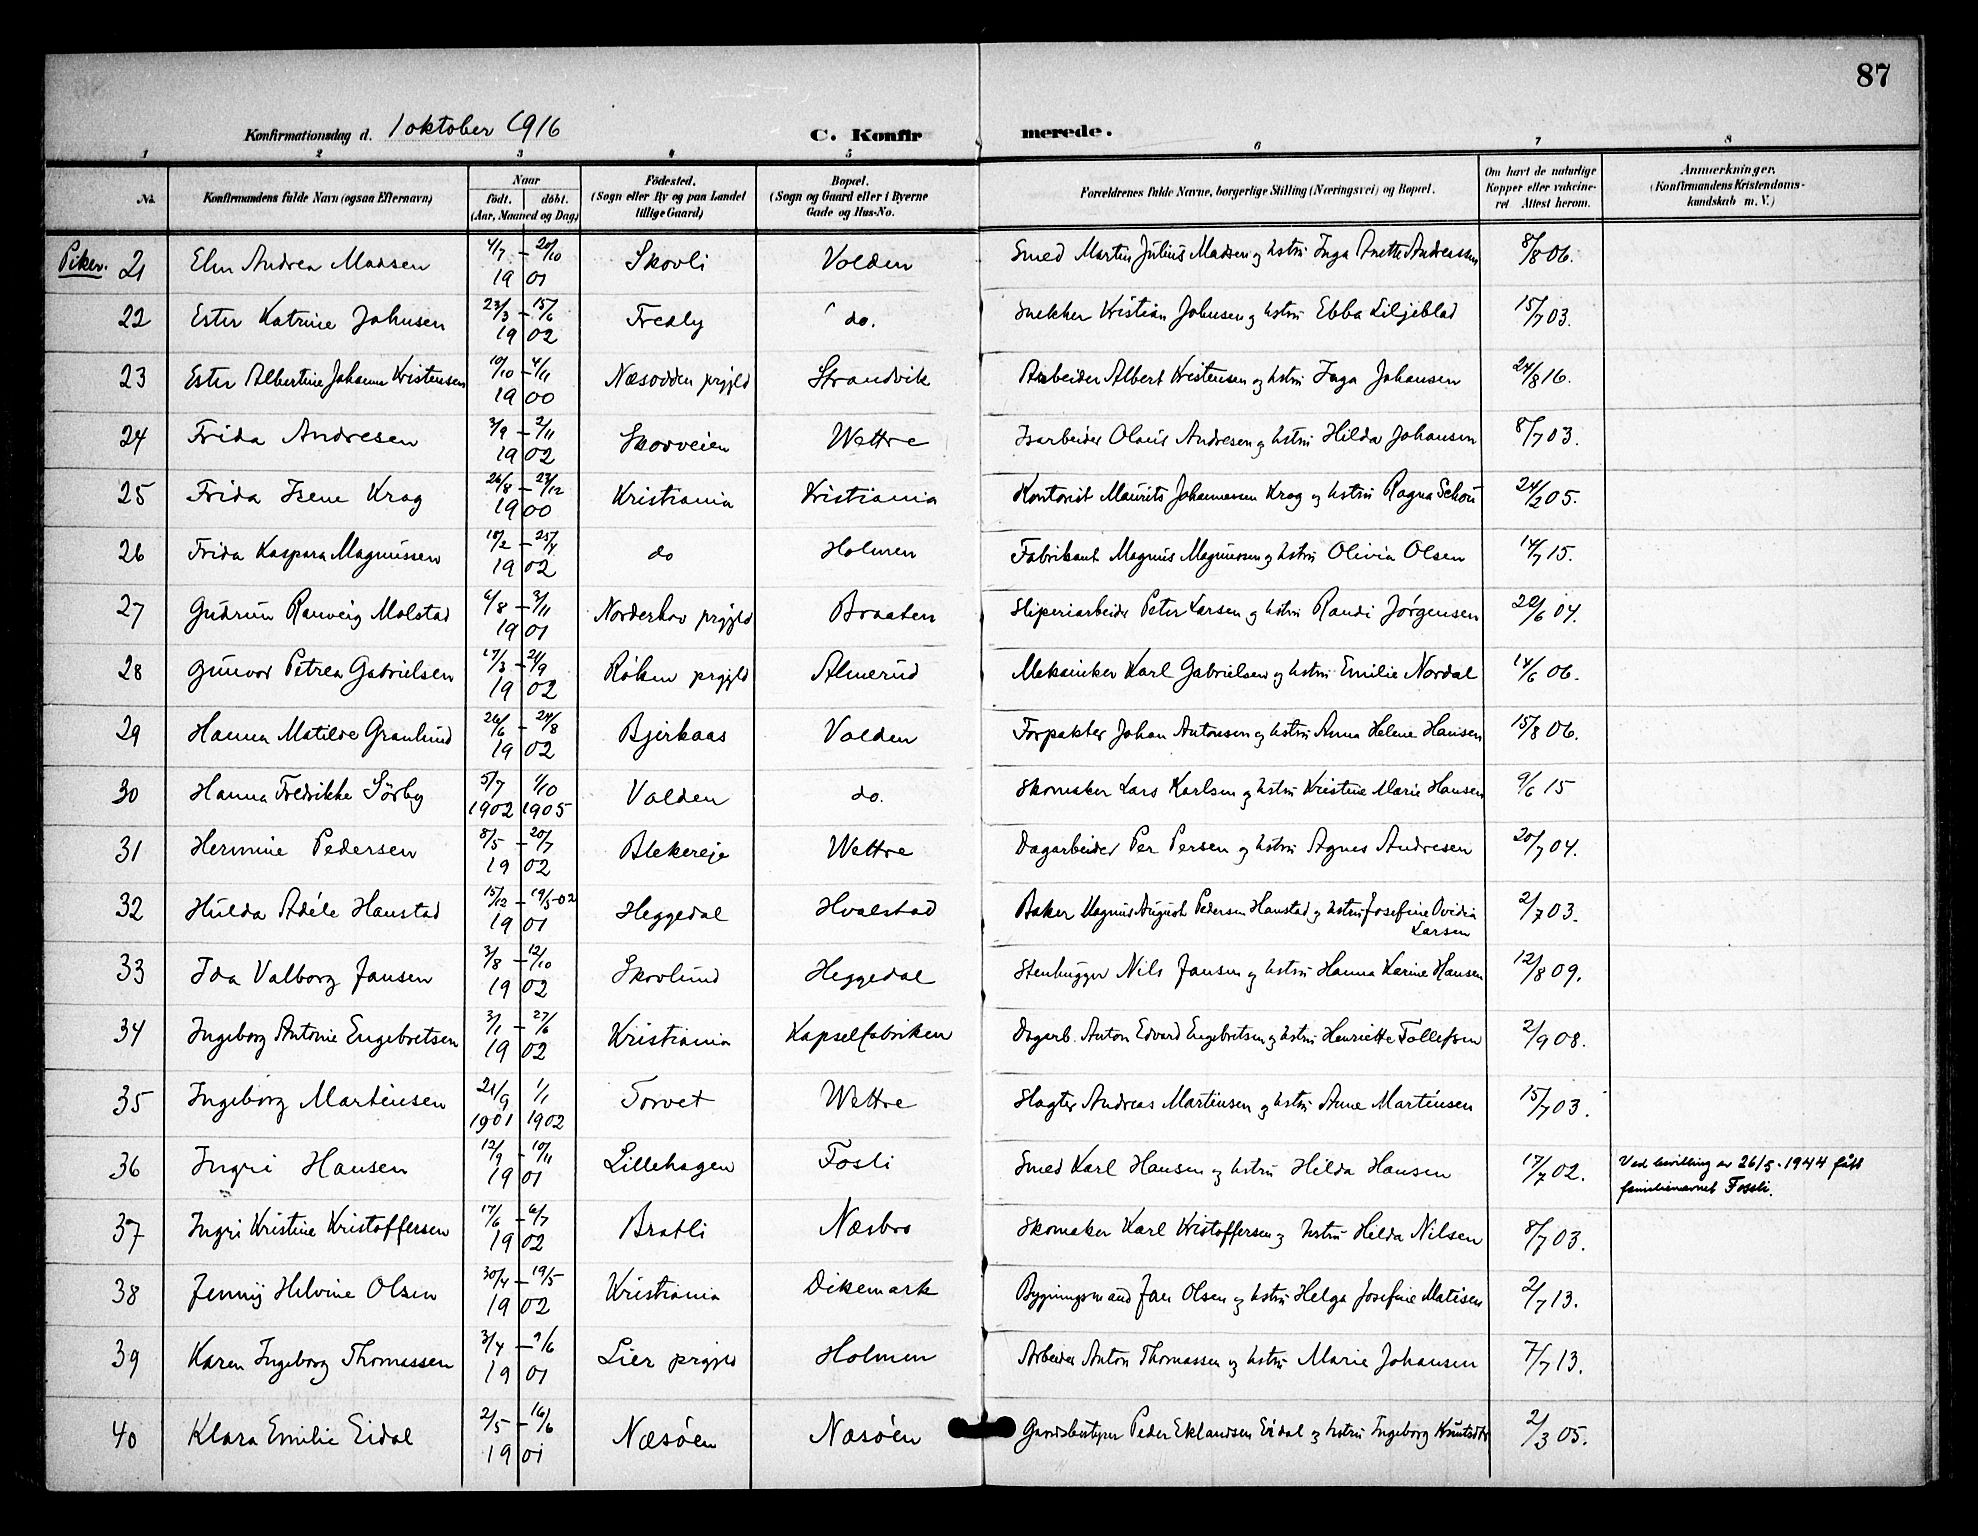 87
Konfirmationsdag d. 1 oktober 1916 C. Konfir merede.
1 2 3 4 5 6 7 8
No. Konfirmandens fulde Navn (ogsaa Efternavn) Naar født. døbt. (Aar, Maaned og Dag) Fødested. (Sogn eller By og paa Landet tillige Gaard) Bopæl. (Sogn og Gaard eller i Byerne Gade og Hus-No. Forældrenes fulde Navne, borgerlige Stilling (Næringsvei) og Bopæl. Om havt de naturlige Kopper eller vakcineret. Attest herom. Anmærkninger. (Konfirmandens Kristendomskundskab m. V.)
Piker. 21 Elen Andrea Madsen 4/7 – 20/10 1901 Skovli Volden Smed Martin Julius Madsen og hstru Inga Anette Andreassen 8/8 06.
22 Ester Katrine Johnsen 23/3 – 15/6 1902 Fredly do. Snekker Kristian Johnsen og hstru Ebba Liljeblad 15/7 03.
23 Ester Albertine Johanne Kristensen 10/10 – 4/11 1900 Næsodden prgjld Strandvik Arbeider Albert Kristensen og hstru Inga Johansen 24/8 16.
24 Frida Andresen 3/9 – 2/11 1902 Skovveien Wettre Isarbeider Olaus Andresen og hstru Hilda Johansen 8/7 03.
25 Frida Irene Krag 26/8 – 23/12 1900 Kristiania Kristiania Kontorist Maurits Johannessen Krog og hstru Ragna Schou 24/2 05.
26 Frida Kaspara Magnussen 18/2 – 25/4 1902 do Holmen Fabrikant Magnus Magnussen og hstru Olivia Olsen 14/7 15.
27 Gudrun Ranveig Molstad 6/8 – 3/11 1901 Norderhov prgjld Braaten Sliperiarbeider Peter Larsen og hstru Randi Jørgensen 20/6 04.
28 Gunvor Petrea Gabrielsen 17/3 – 21/9 1902 Røken prgjld Almerud Mekaniker Karl Gabrielsen og hstru Emilie Nordal 14/6 06.
29 Hanna Matilde Granlund 26/6 – 24/8 1902 Bjerkaas Volden Forpakter Johan Antonsen og hstru Anna Helene Hansen 15/8 06.
30 Hanna Fredrikke Sörby 5/7 1902 1/10 1905 Volden do. Skomaker Lars Karlsen og hstru Kristine Marie Hansen 9/6 15
31 Hermine Pedersen 8/5 – 20/7 1902 Blekereje Wettre Dagarbeider Per Persen og hstru Agnes Andresen 20/7 04.
32 Hulda Adéle Hanstad 15/12 – 19/5-02 1901 Heggedal Hvalstad Baker Magnus August Pedersen Hanstad og hstru Josefine Ovidia Larsen 2/7 03.
33 Ida Valborg Jansen 3/8 – 12/10 1902 Skovlund Heggedal Stenhugger Nils Jansen og hstru Hanna Karine Hansen 12/8 09.
34 Ingeborg Antonie Engebretsen 3/1 – 27/6 1902 Kristiania Kapselfabriken Dagarb. Anton Edvard Engebretsen og hstru Henriette Tollefsen 2/9 08.
35 Ingeborg Martinsen 21/9 1901 1/1 1902 Torvet Wettre Slagter Andreas Martinsen og hstru Anne Martinsen 15/7 03.
36 Ingri Hansen 12/9 – 10/11 1901 Lillehagen Fosli Smed Karl Hansen og hstru Hilda Hansen 17/7 02. Ved bevilling av 26/5-1944 fått familienavnet Fossli.
37 Ingri Kristine Kristoffersen 17/6 – 6/7 1902 Bratli Næsbro Skomaker Karl Kristoffersen og hstru Hilda Nilsen 8/7 03.
38 Jenny Helvine Olsen 30/4 – 19/5 1902 Kristiania Dikemark Bygningsmand Jan Olsen og hstru Helga Josefine Matisen 2/7 13.
39 Karen Ingeborg Thomassen 3/4 – 9/6 1901 Lier prgjld Holmen Arbeider Anton Thomassen og hstru Marie Johansen 7/7 13.
40 Klara Emilie Eidal 2/5 – 16/6 1901 Næsöen Næsöen Gaardsbestyrer Peder Eklandsen Eidal og hstru Ingeborg Knutsdtr 2/3 05.